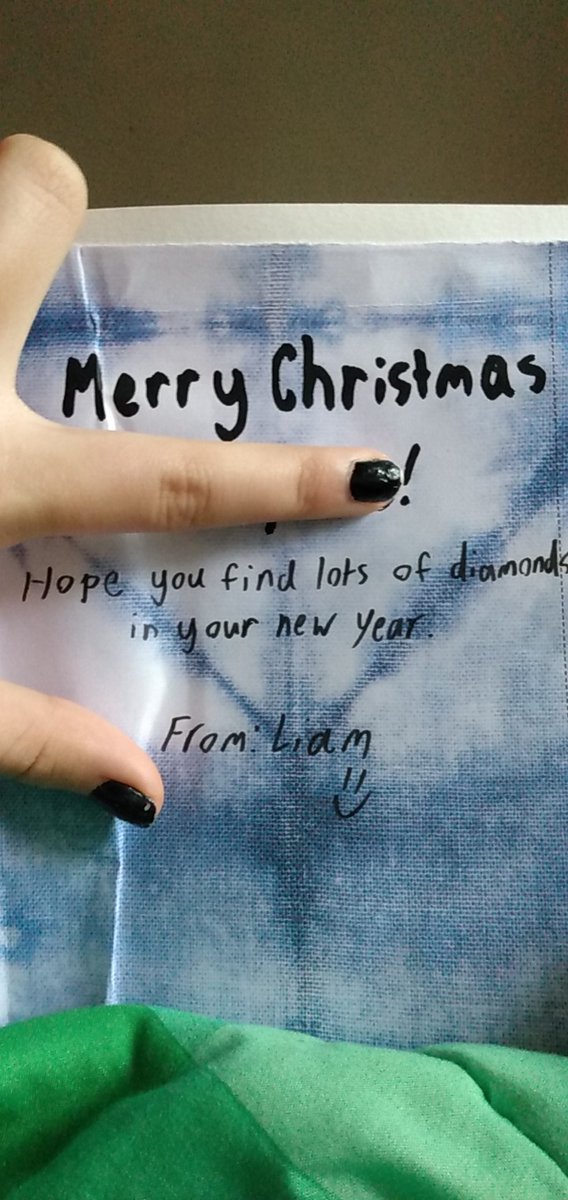 Merry Christmas
!
Hope you find lots of diamonds
in your new year.
From: Liam